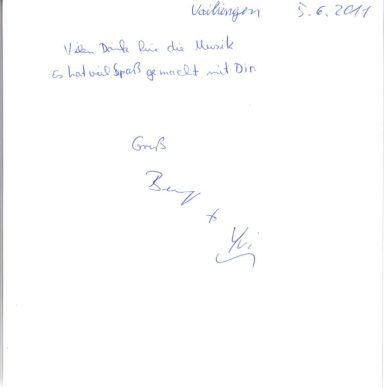 Vaihingen 5.6.2011
Vielen Dank für die Musik
Es hat viel Spaß gemacht mit Dir.
Gruß
+
Yvi